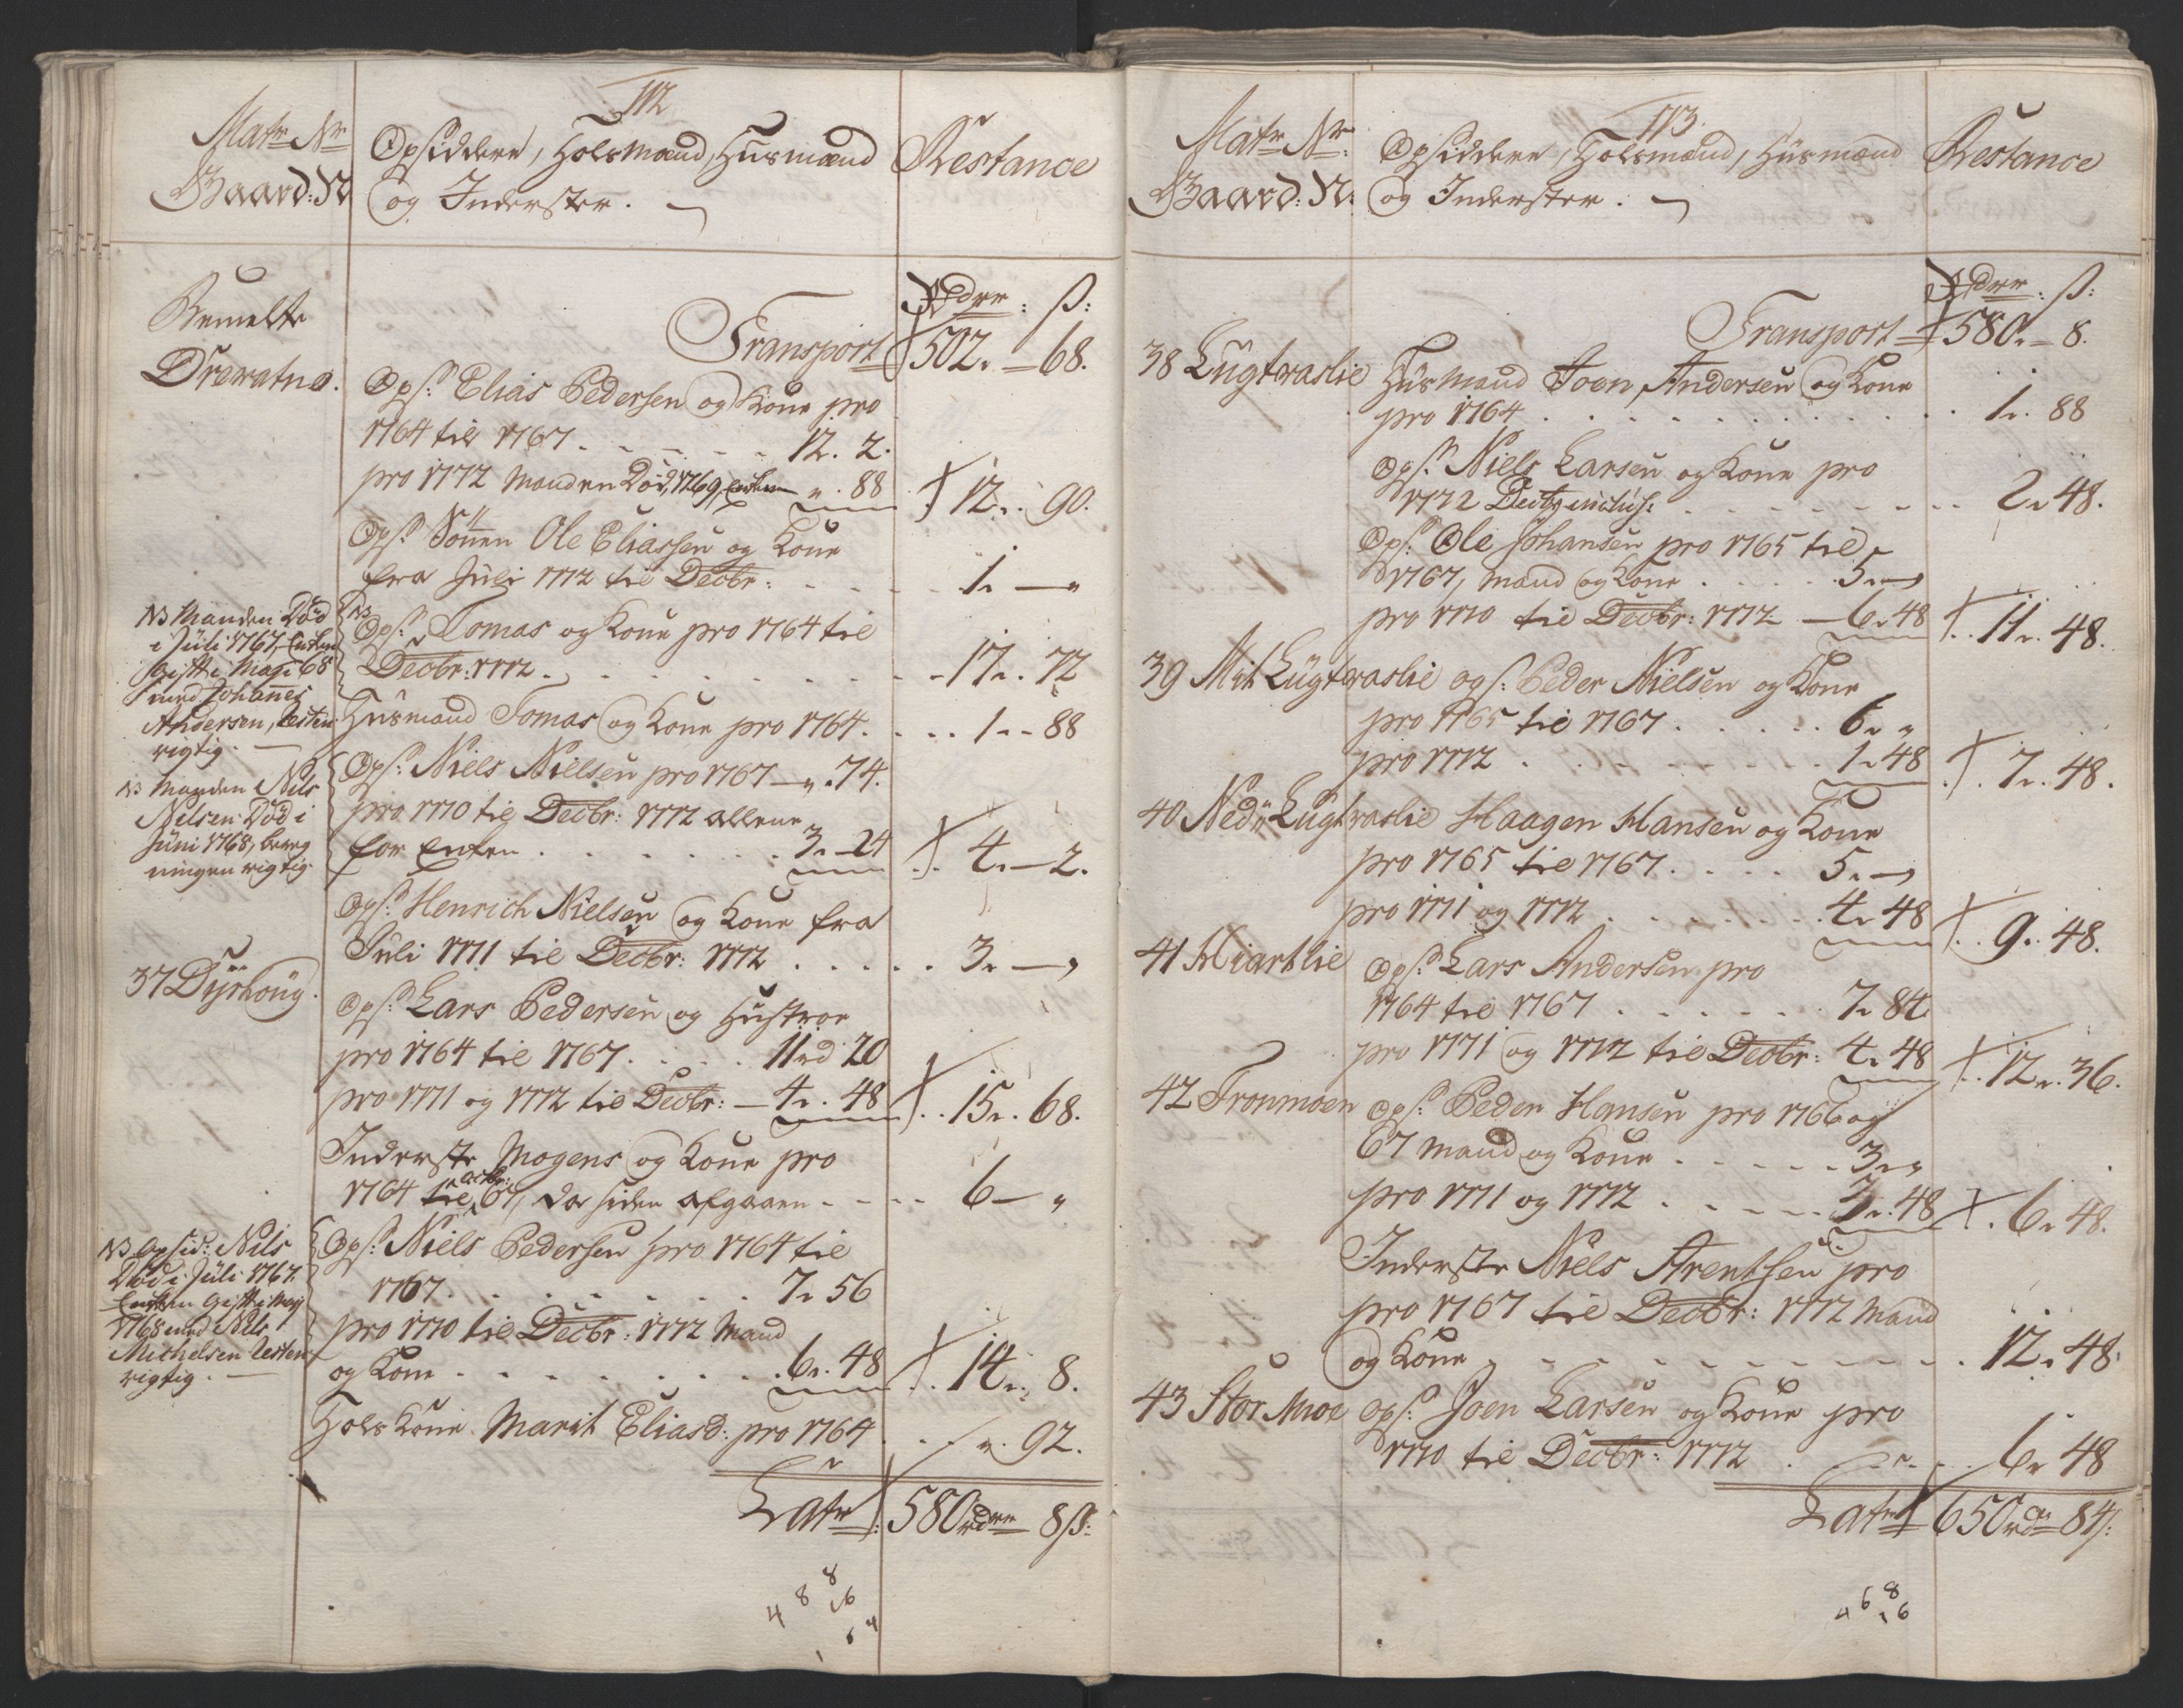 112
Matr Nr
Gaard: N
Opsiddere, Holsmænd, Husmænd
og Inderster.
Restance
Bemelte
Drevatne.
Rdr: ß:
Transport 502. - 68.
Ops: Elias Pedersen og Kone pro
1764 til 1767 . . . . . 12. 2.
pro 1772 Manden Död 1769, Enken ". 88 12. 90.
Ops: Sönnen Ole Eliassen og Kone
fra Juli 1772 til Decbr: . . . . 1. — "
NB Manden Död
i Juli 1767, Enken
Gift i Maji 68
med Johannes
Andersen, Resten
rigtig. —
NB
Ops: Tomas og Kone pro 1764 til
Decbr: 1772. . . . . . . . 17. 72
Husmand Tomas og Kone pro 1764. . . . 1. - 88
NB Manden Nils
Nilsen Död i
Juni 1768, bereg
ningen rigtig.
Ops: Niels Nielsen pro 1767 — ". 74.
pro 1770 til Decbr: 1772 allene
for Enken . . . . . . . 3. - 24 4. - 2.
Ops: Henrich Nielsen og Kone fra
Juli 1771 til Decbr: 1772 . . . . . 3. — "
37 Dyshöug.
Ops: Lars Pedersen og Hustroe
pro 1764 til 1767. . . . . 11rd 20
pro 1771 og 1772 til Decbr: — 4. 48 15. 68.
Inderste Mogens og Kone pro
1764 til Octbr: 67, da siden afgaaen - - - - 6 — "
NB Opsid: Nils
Död i Juli 1767.
Enken Gift i Maij
1768 med Nils
Michelsen Resten
rigtig. —
Ops: Niels Pedersen pro 1764 til
1767. . . . . . . . 7. 56
pro 1770 til Decbr: 1772 Mand
og Kone . . . . . . . . 6. 48 14. 8.
Hols Kone Marit Eliasd: pro 1764 . . . ". 92.
Latr: 580 rdr 8 ß:
8
4 8 6
6 4
1
113.
Matr Nr:
Gaard: N:
Opsiddere, Holsmænd, Husmænd
og Inderster.
Restance
Rdr: ß:
Transport 580. - 8.
38 Lugtvaslie Husmand Joen Andersen og Kone
pro 1764 . . . . . . . . . . 1. 88
Ops: Niels Larsen og Kone pro
1772 Decbr inclus: . . . . . . . 2. 48.
Ops: Ole Johansen pro 1765 til
1767, Mand og Kone . . . . . 5. — "
pro 1770 til Decbr: 1772 — 6. 48 11. 48.
39 Mit Lugtvaslie Ops: Peder Nielsen og Kone
pro 1765 til 1767 . . . . . 6. "
pro 1772 . . . . . . . . 1. 48 7. 48.
40 Ned: Lugtvaslie Haagen Hansen og Kone
pro 1765 til 1767. . . . . 5. — "
pro 1771 og 1772 . . . . . . . 4. 48 9. 48.
41 Hiartlie Ops: Lars Andersen pro
1764 til 1767 . . . . . . . 7. 84
pro 1771 og 1772 til Decbr: 4. 48 12. 36.
42 Tronmoen Ops: Peder Hansen pro 1766 og
67 Mand og Kone . . . . . . 3. "
pro 1771 og 1772 . . . . . . 3. 48 6. 48.
Inderste Niels Arentsen pro
pro 1767 til Decbr: 1772 Mand
og Kone - - - - - - - - - - 12. 48.
43 Stor Moe Ops: Joen Larsen og Kone pro
1770 til Decbr: 1772 . . . . . 6. 48
Latr 650 rdr 84 ß:
4 6 8
1 6